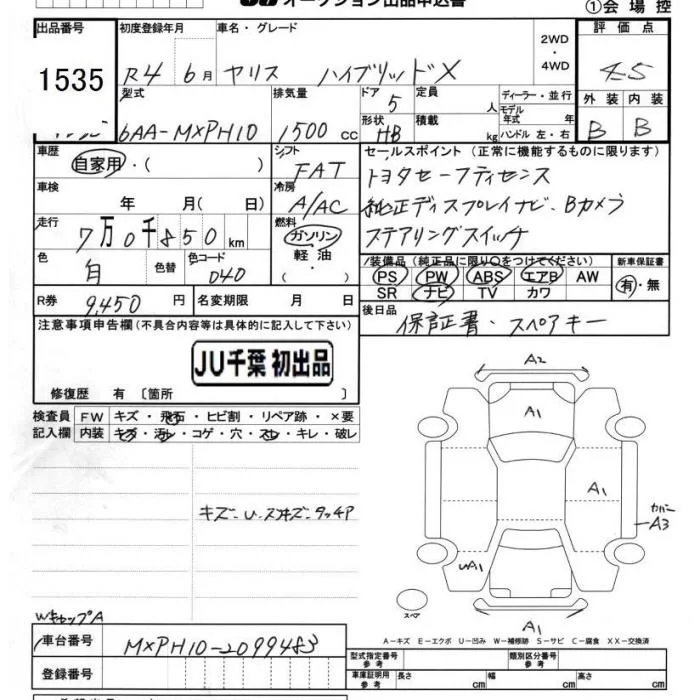 オークション出品申込書
①会場控
出品番号
1535
初度登録年月
R4 6月
車名・グレード
ヤリス ハイブリッドX
2WD・4WD
評価点
4.5
外装 内装
B B
型式
6AA-MXPH10
排気量
1500 cc
ドア
5
形状
HB
定員
人
積載
kg
ディーラー・並行
モデル年式 年式
ハンドル 左・右
車歴
自家用・( )
シフト
FAT
冷房
A/AC
燃料
ガソリン・軽油・
車検
年 月( 日)
走行
7万0千850km
色
白
色替
色コード
040
R券
9,450円
名変期限 月 日
セールスポイント (正常に機能するものに限ります)
トヨタセーフティセンス
純正ディスプレイナビ・Bカメラ
ステアリングスイッチ
装備品 (純正品に限り○をつけてください)
PS PW ABS エアB AW
SR ナビ TV カワ
新車保証書
有・無
後日品
保証書・スペアキー
注意事項申告欄(不具合内容等は具体的に記入して下さい)
JU千葉 初出品
修復歴 有〔箇所 〕
検査員記入欄
FW キズ・飛石・ヒビ割・リペア跡・×要
内装 キズ・汚レ・コゲ・穴・スレ・キレ・破レ
キズ・U・スリキズ・タッチP
A2
A1
A1
カバー
A3
UA1
A1
スペア
A-キズ E-エクボ U-凹み W-補修跡 S-サビ C-腐食 XX-交換済
WキャップA
車台番号
MXPH10-2099483
登録番号
型式指定番号 参考
類別区分番号 参考
車庫証明用 参考
長さ cm 幅 cm 高さ cm